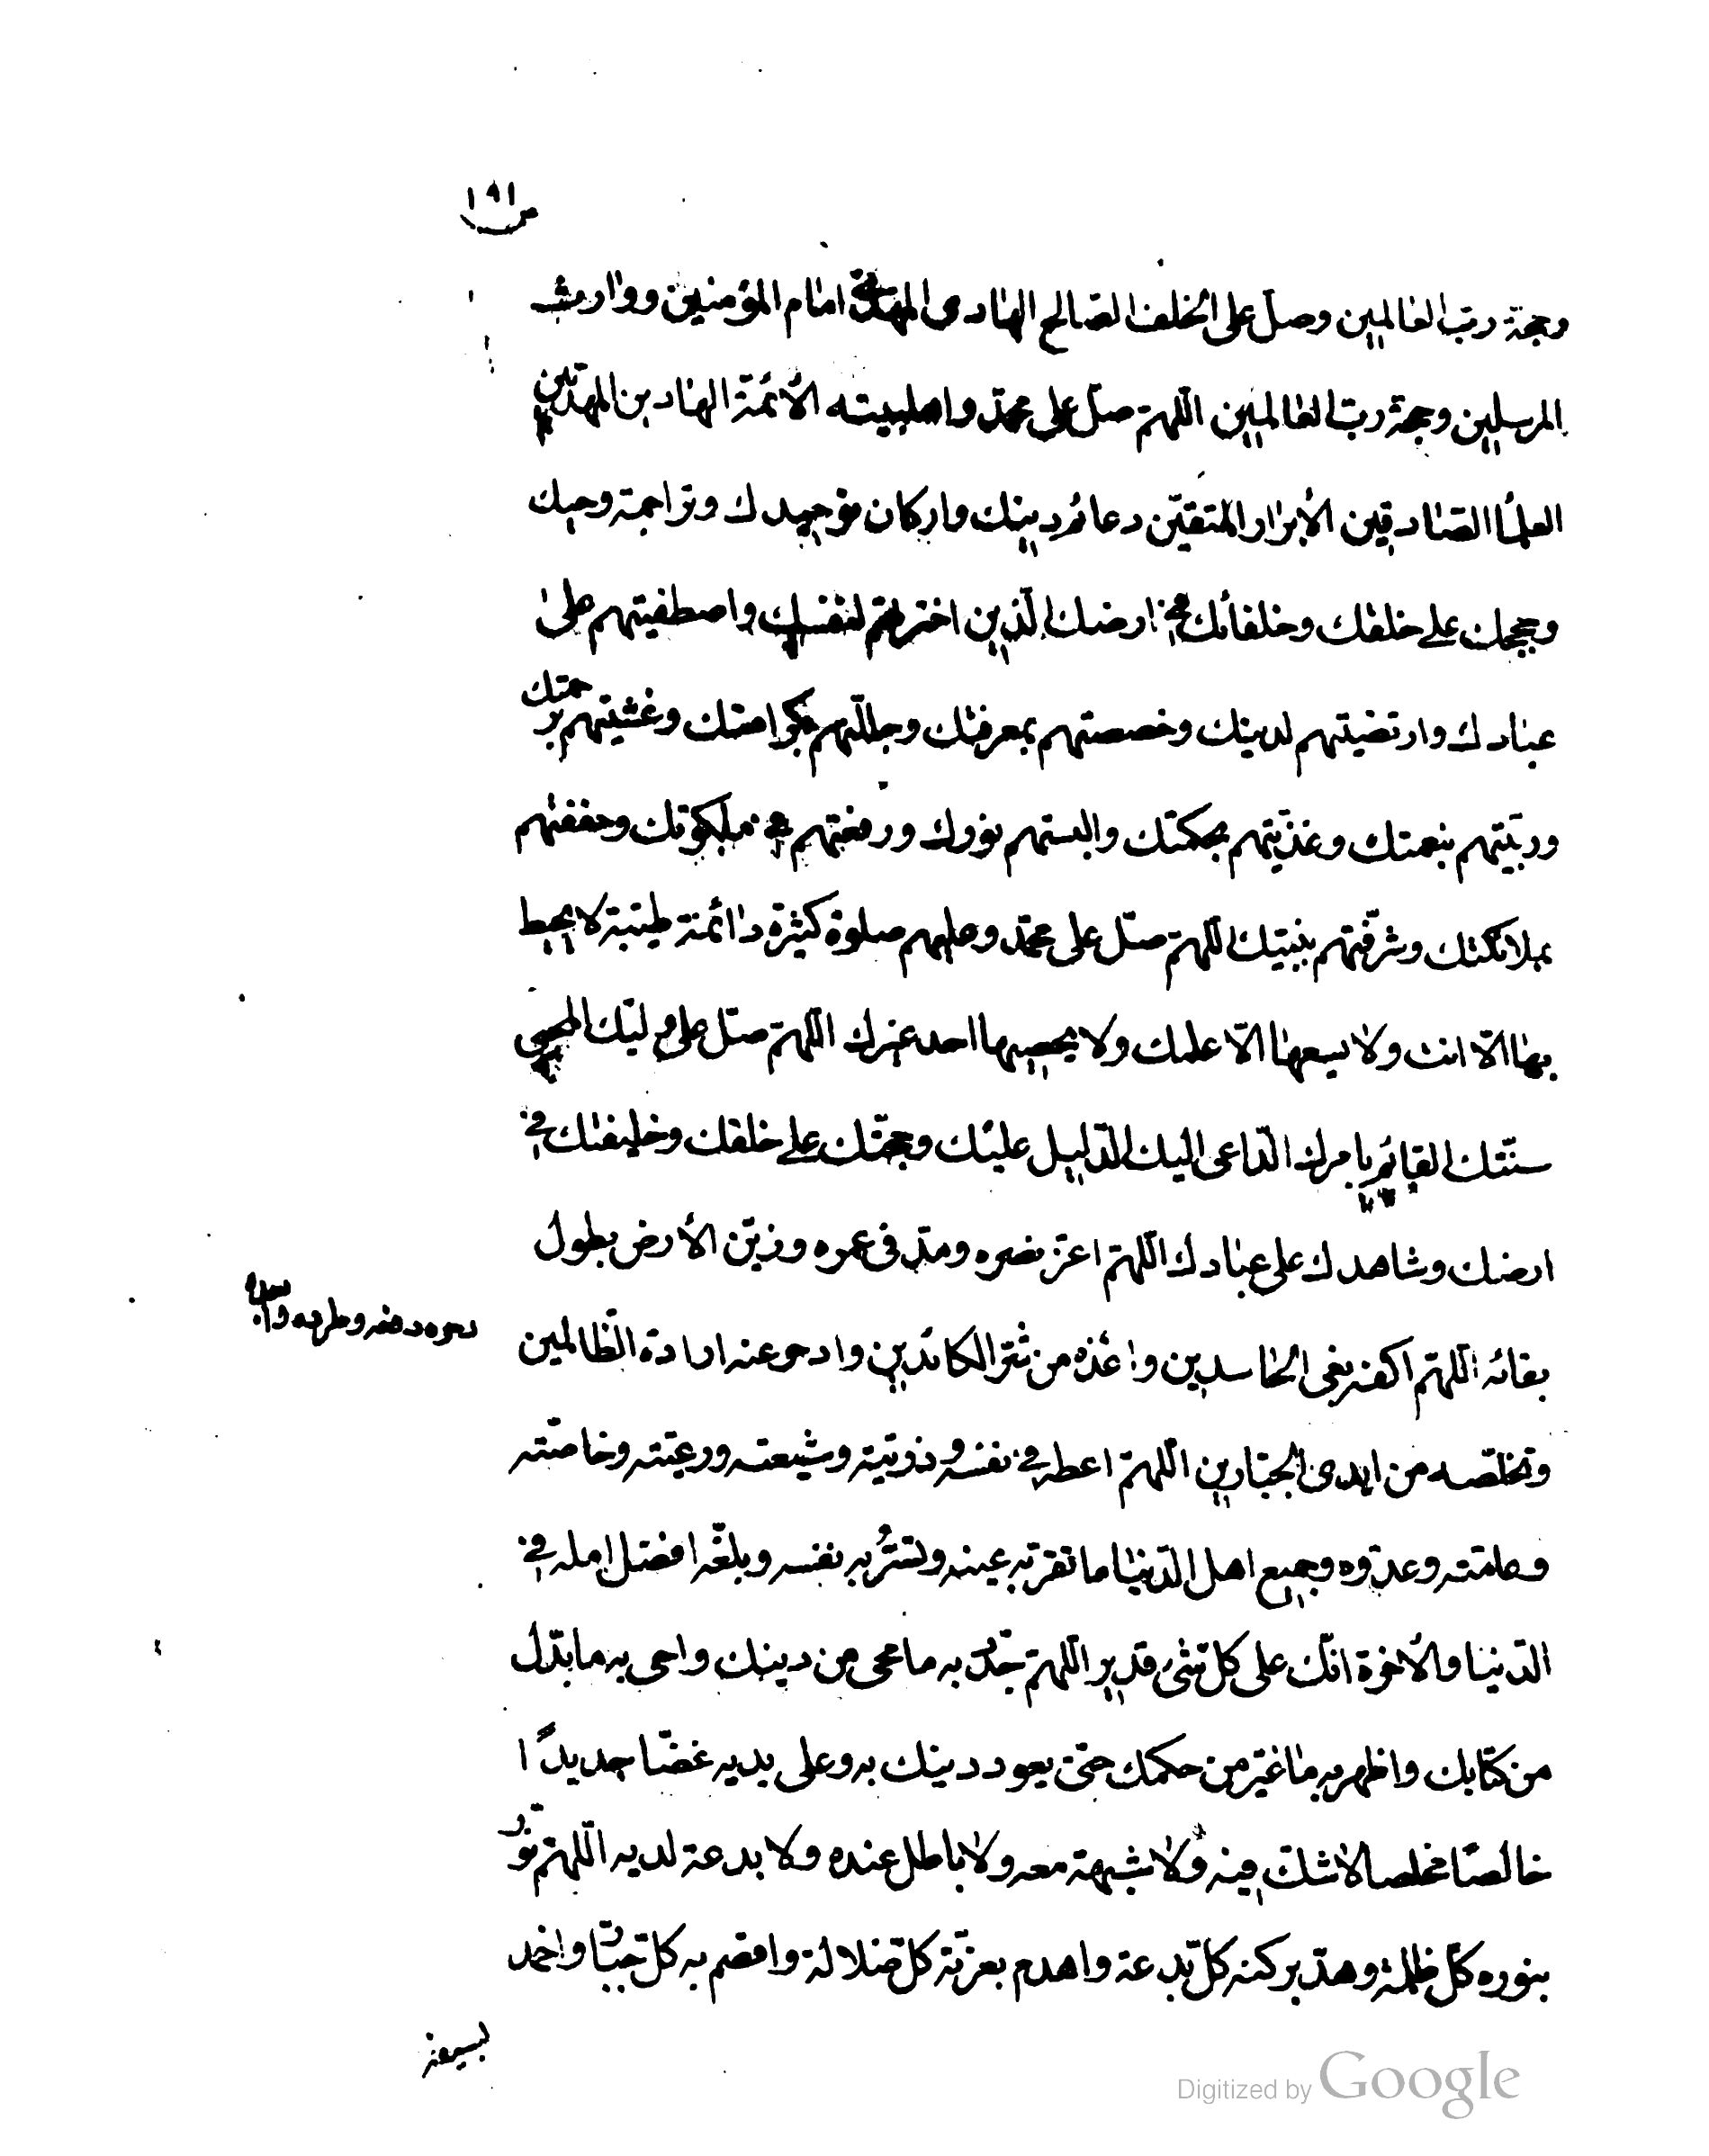 ١٩١
وحجة رب العالمين وصل على الخلف الصالح الهادى المهدى امام المؤمنين ووارث
المرسلين وحجة رب العالمين اللهم صل على محمد واهلبيته الأئمة الهادين المهديين
العلمأ الصادقين الأبرار المتقين دعائم دينك واركان توحيدك وتراجمة وحيك
وحججك على خلقك وخلفائك فى ارضك الذين اخترتهم لنفسك واصطفيتهم على
عبادك وارتضيتهم لدينك وخصصتهم بمعرفتك وجللتهم بكرامتك وغشيتهم برحمتك
وربيتهم بنعمتك وغذيتهم بحكمتك والبستهم نورك ورفعتهم فى ملكوتك وحففتهم
بملائكتك وشرفتهم بنبيك اللهم صل على محمد وعليهم صلوة كثيرة دائمة طيبة لا يحيط
بها الا انت ولا يسعها الا علمك ولا يحصيها احد غيرك اللهم صل على وليك المحيى
سنتك القائم بامرك الداعى اليك الدليل عليك وحجتك على خلقك وخليفتك فى
ارضك وشاهدك على عبادك اللهم اعز نصره ومد فى عمره وزين الأرض بطول
بقائه اللهم اكفه بغى الحاسدين واعذه من شر الكائدين وادحر عنه ارادة الظالمين
دحره دفعه وطرده
وتخلصه من ايدى الجبارين اللهم اعطه فى نفسه وذريته وشيعته ورعيته وخاصته
وعامته وعدوه وجميع اهل الدنيا ما تقر به عينه وتسر به نفسه وبلغه افضل امله فى
الدنيا والأخرة انك على كل شئ قدير اللهم جدد به ما محى من دينك واحى به ما بدل
من كتابك واظهر به ما غير من حكمك حتى يعود دينك به وعلى يديه غضا جديدًا
خالصًا مخلصا لا شك فيه ولا شبهة معه ولا باطل عنده ولا بدعة لديه اللهم نور
بنوره كل ظلمة وهد بركنه كل بدعة واهدم بعزته كل ضلالة واقصم به كل جبار واخمد
بسيفه
Digitized by Google